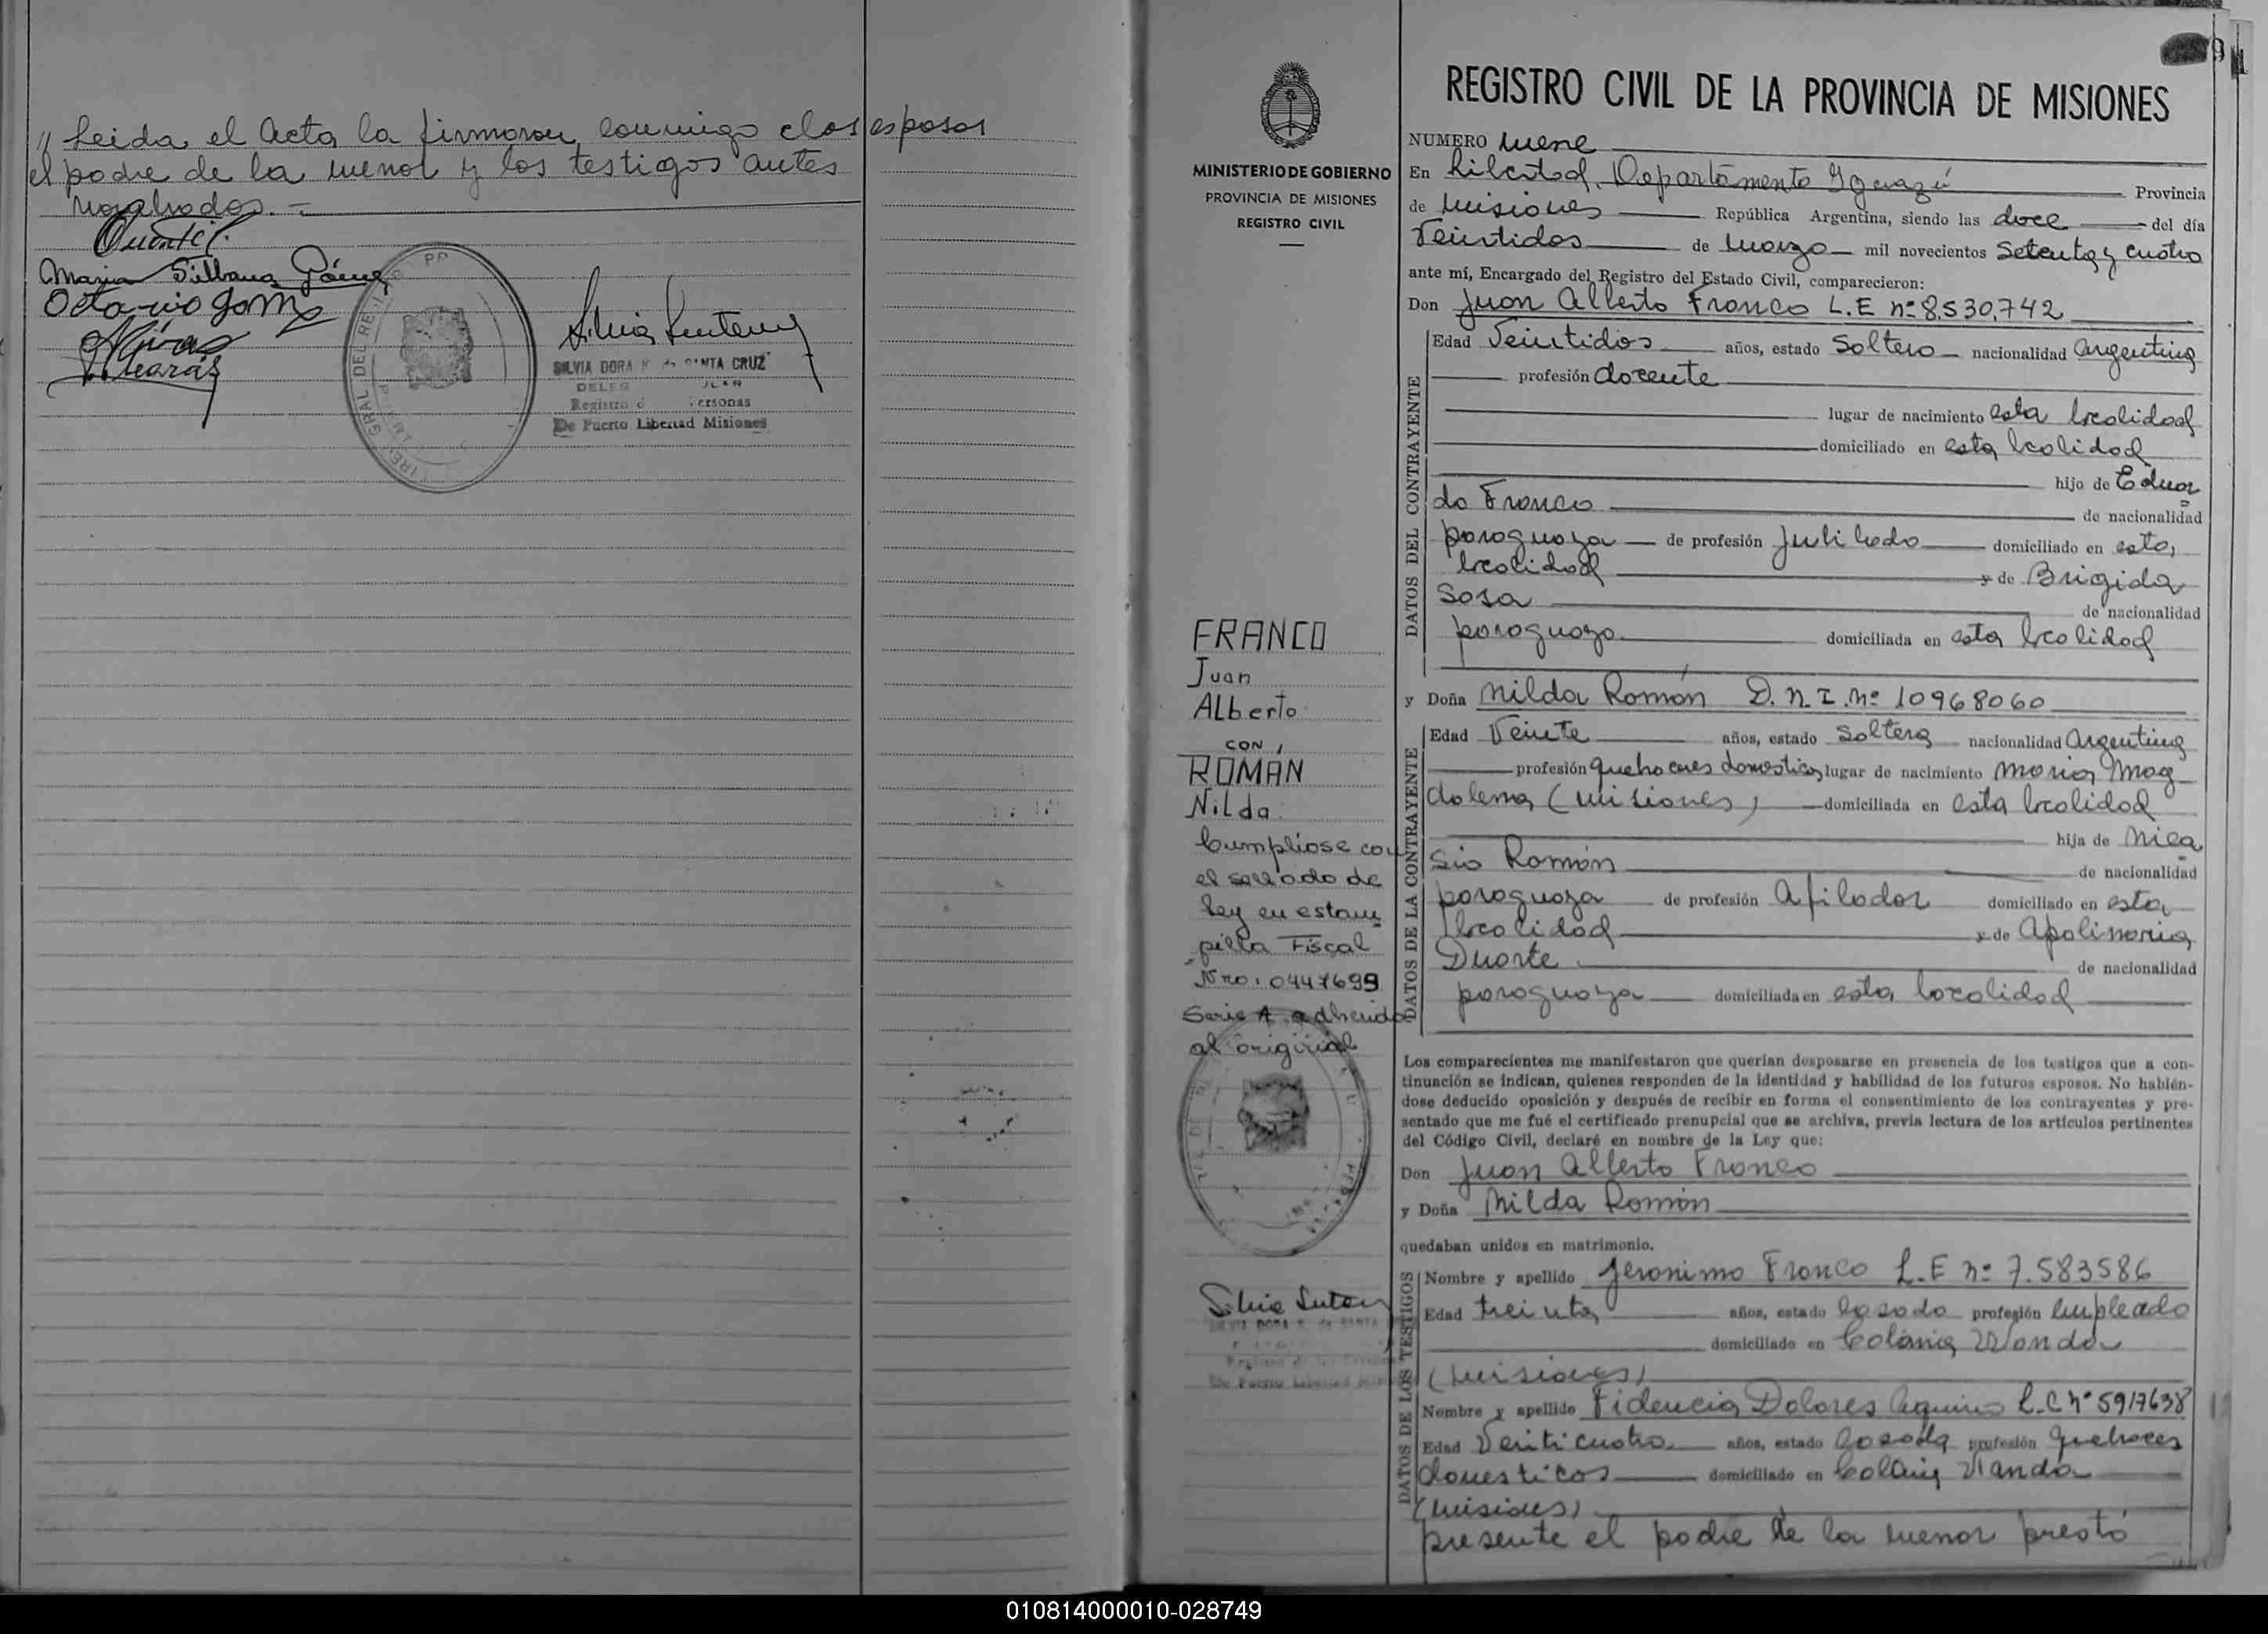 " Leida el Acta la firmaron conmigo los esposos
el padre de la menor y los testigos antes
nombrados. =
Maria Silbana Gómez
Octavio gomez
SILVIA DORA K. de SANTA CRUZ
Registro d ersonas
De Puerto Libertad Misiones
MINISTERIO DE GOBIERNO
PROVINCIA DE MISIONES
REGISTRO CIVIL
FRANCO
Juan
ALberto
CON
ROMÁN
NiLda
Cumpliose con
el sellado de
ley en estam
pilla Fiscal
Nro: 0447699
Serie A adherida
al original
REGISTRO CIVIL DE LA PROVINCIA DE MISIONES
NUMERO nueve
En Libertad, Departamento Iguazú Provincia
de Misiones República Argentina, siendo las doce del día
Veintidos de marzo mil novecientos Setenta y cuatro
ante mí, Encargado del Registro del Estado Civil, comparecieron:
Don Juan Alberto Franco L.E nº 8.530.742
DATOS DEL CONTRAYENTE
Edad Veintidos años, estado Soltero nacionalidad argentina
profesión docente
lugar de nacimiento esta localidad
domiciliado en esta localidad
hijo de Eduar
do Franco de nacionalidad
paraguaya de profesión Jubilado domiciliado en esta
localidad y de Brigida
Sosa de nacionalidad
paraguaya domiciliada en esta localidad
y Doña Nilda Román D.N.I. Nº 10968060
DATOS DE LA CONTRAYENTE
Edad Veinte años, estado Soltera nacionalidad argentina
profesión quehaceres domesticos lugar de nacimiento Maria Mag
dalena (Misiones) domiciliada en esta localidad
hija de Nica
sio Román de nacionalidad
paraguaya de profesión Afilador domiciliado en esta
localidad y de Apolinaria
Duarte de nacionalidad
paraguaya domiciliada en esta localidad
Los comparecientes me manifestaron que querían desposarse en presencia de los testigos que a con-
tinuación se indican, quienes responden de la identidad y habilidad de los futuros esposos. No habién-
dose deducido oposición y después de recibir en forma el consentimiento de los contrayentes y pre-
sentado que me fué el certificado prenupcial que se archiva, previa lectura de los artículos pertinentes
del Código Civil, declaré en nombre de la Ley que:
Don Juan Alberto Franco
y Doña Nilda Román
quedaban unidos en matrimonio.
DATOS DE LOS TESTIGOS
Nombre y apellido Jeronimo Franco L.E nº 7.583586
Edad treinta años, estado Casado profesión Empleado
domiciliado en Colonia Wanda
(Misiones)
Nombre y apellido Fidencia Dolores Aquino L.C Nº 5917638
Edad Veinticuatro años, estado Casada profesión quehaceres
domesticos domiciliado en Colonia Wanda
(Misiones)
presente el padre de la menor prestó
010814000010-028749